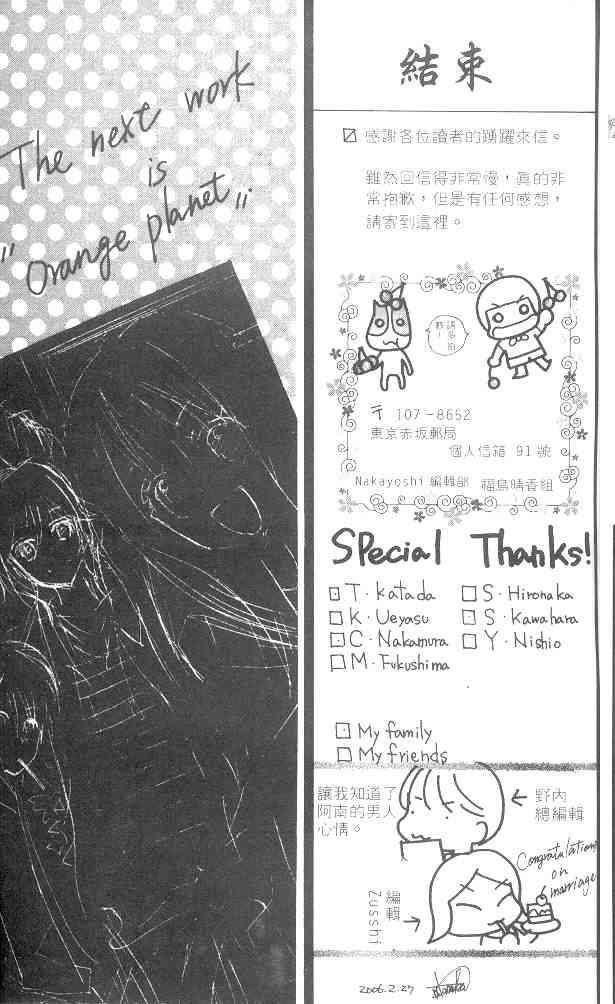 The next work
is
"Orange planet"
結束
感謝各位讀者的踴躍來信。
雖然回信得非常慢，真的非
常抱歉，但是有任何感想，
請寄到這裡。
請多指
教！
〒107-8652
東京赤坂郵局
個人信箱 91 號
Nakayoshi 編輯部 福島晴香組
Special Thanks!
T・Katada
K・Ueyasu
C・Nakamura
M・Fukushima
S・Hironaka
S・Kawahara
Y・Nishio
My family
My friends
讓我知道了
阿南的男人
心情。
← 野內
總編輯
Congratulations
on
marriage
編輯
Zusshi
2006.2.27